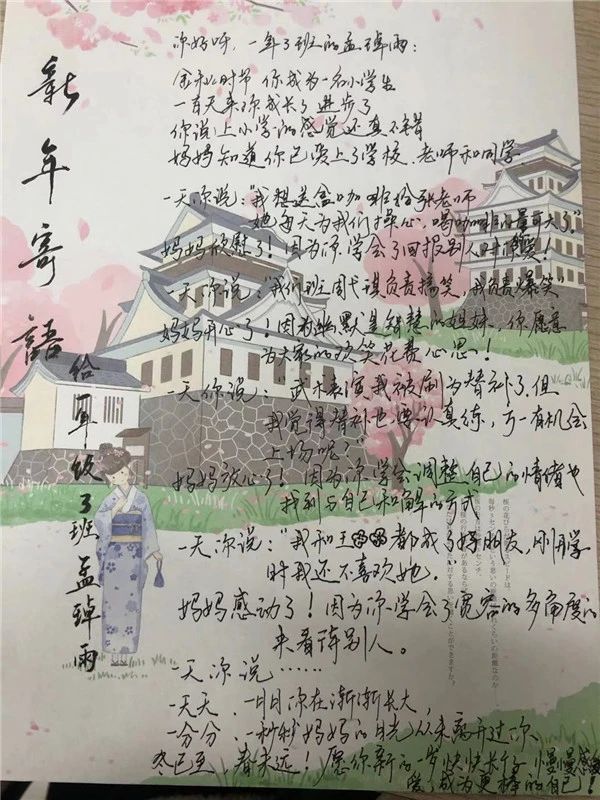 新年寄語
给一年级3班孟琸雨
你好呀，一年3班的孟琸雨：
金秋时节 你成为一名小学生
一百天来你成长了 进步了
你说上小学的感觉还真不错
妈妈知道你已爱上了学校、老师和同学
一天你说："我想送盒咖啡给张老师
她每天为我们操心，喝咖啡的量可大了。"
妈妈欣慰了！因为你学会了回报别人
一天你说："我们班周弋琪负责搞笑，我负责爆笑"
妈妈开心了！因为幽默是智慧的姐妹，你愿意
为大家的欢笑花费心思！
一天你说："武术表演我被刷为替补了，但
我觉得替补也要认真练，万一有机会
上场呢？"
妈妈放心了！因为你学会调整自己的情绪也
找到与自己和解的方式
一天你说："我和王都成了好朋友，刚开学
时我还不喜欢她."
妈妈感动了！因为你学会了宽容的多角度的
来看待别人。
一天你说……
一天天、一日日你在渐渐长大，
一分分、一秒秒妈妈的目光从未离开过你、
冬已至，春未远！愿你新的一岁快快长个子，慢慢感
受，成为更棒的自己！